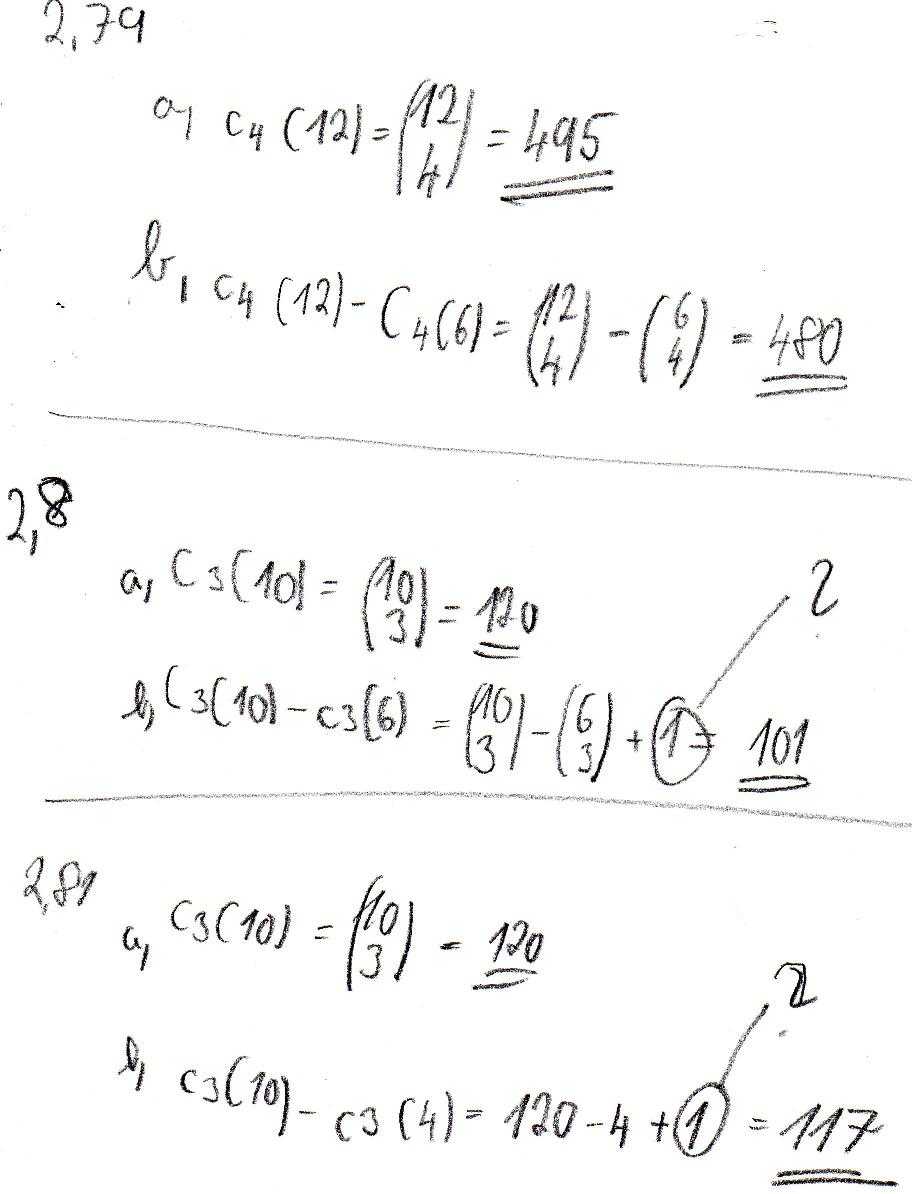 2,79
a, C4 (12) = (12 4) = 495
b, C4 (12) - C4(6) = (12 4) - (6 4) = 480
2,8
a, C3(10) = (10 3) = 120
?
b, C3(10) - C3(6) = (10 3) - (6 3) + 1 = 101
2,81
a, C3(10) = (10 3) = 120
?
b, C3(10) - C3(4) = 120 - 4 + 1 = 117